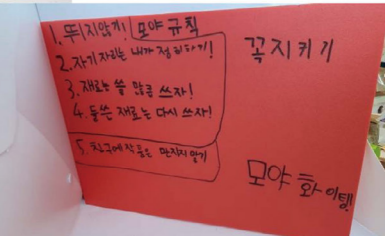 1. 뚜지않기! 모야 규칙
2. 자기 자리는 내가 정리하기!
3. 재료는 쓸 많큼 쓰자!
4. 둘쓴 재료는 다시 쓰자!
5. 친구에 작품은 만지지 않기
꼭지키기
모야 화이팅!